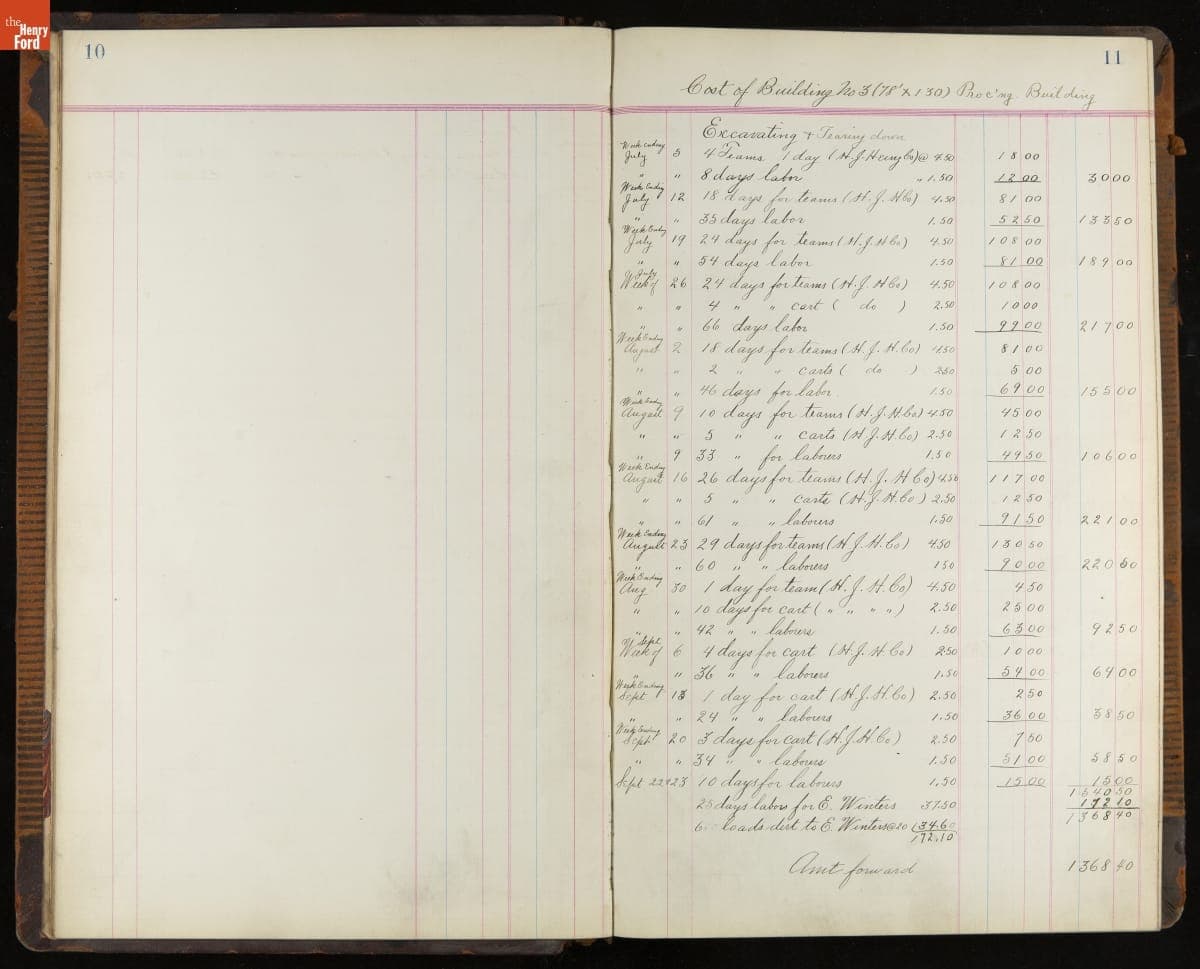 the
Henry
Ford
10
11
Cost of Building No 3 (78' x 130) Proc'ng. Building
Excavating & Tearing down
Week ending
July 5 4 Teams 1 day (H. J. Heinz Co) @ 4.50 18 00
" " 8 days labor " 1.50 12 00 30 00
Week Ending
July 12 18 days for teams (H. J. H Co) 4.50 81 00
" " 35 days labor 1.50 52 50 133 50
Week Ending
July 19 24 days for teams (H. J. H Co) 4.50 108 00
" " 54 days labor 1.50 81 00 189 00
July
Week of 26 24 days for teams (H. J. H Co) 4.50 108 00
" " 4 " " cart ( do ) 2.50 10 00
" " 66 days labor 1.50 99 00 217 00
Week Ending
August 2 18 days for teams (H. J. H. Co) 4.50 81 00
" " 2 " " carts ( do ) 2.50 5 00
" " 46 days for labor 1.50 69 00 155 00
Week Ending
August 9 10 days for teams (H. J. H. Co) 4.50 45 00
" " 5 " " carts (H. J. H. Co) 2.50 12 50
" 9 33 " for laborers 1.50 49 50 106 00
Week Ending
August 16 26 days for teams (H. J. H Co) 4.50 117 00
" " 5 " " carts (H. J. H. Co) 2.50 12 50
" " 61 " " laborers 1.50 91 50 221 00
Week Ending
August 23 29 days for teams (H. J. H. Co) 4.50 130 50
" " 60 " " laborers 1 50 90 00 220 50
Week Ending
Aug 30 1 day for team (H. J. H. Co) 4.50 4 50
" " 10 days for cart ( " " " " ) 2.50 25 00
" " 42 " " laborers 1.50 63 00 92 50
Sept
Week of 6 4 days for cart (H. J. H Co) 2.50 10 00
" " 36 " " laborers 1.50 54 00 64 00
Week Ending
Sept 13 1 day for cart (H. J. H Co) 2.50 2 50
" " 24 " " laborers 1.50 36 00 38 50
Week Ending
Sept 20 3 days for cart (H. J. H Co.) 2.50 7 50
" " 34 " " laborers 1.50 51 00 58 50
Sept 22 & 23 10 days for laborers 1.50 15 00 15 00
1540 50
25 days labor for E. Winters 37.50 172 10
1368 40
loads dirt to E. Winters @ 20 134.60
172.10
Amt forward 1368 40